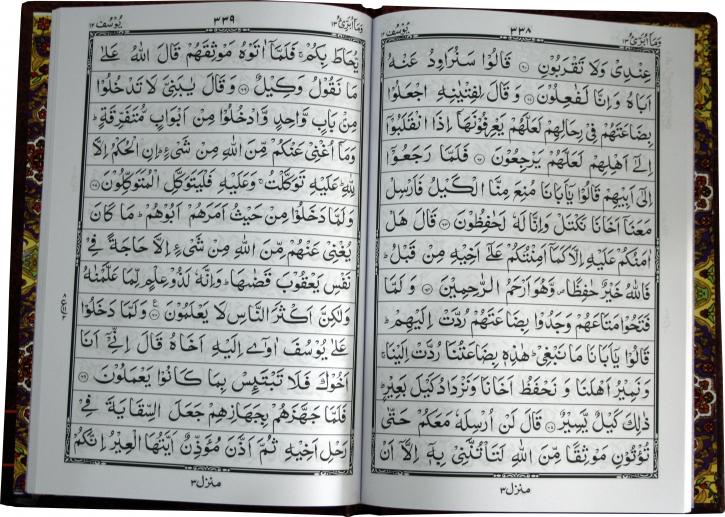 وَمَآ اُبَرِّئُ ١٣
٣٣٨
يُوْسُف ١٢
عِنْدِىْ وَلَا تَقْرَبُوْنِ ﴿٦٠﴾ قَالُوْا سَنُرَاوِدُ عَنْهُ
اَبَاهُ وَاِنَّا لَفٰعِلُوْنَ ﴿٦١﴾ وَقَالَ لِفِتْيٰنِهِ اجْعَلُوْا
بِضَاعَتَهُمْ فِىْ رِحَالِهِمْ لَعَلَّهُمْ يَعْرِفُوْنَهَاۤ اِذَا انْقَلَبُوْۤا
اِلٰٓى اَهْلِهِمْ لَعَلَّهُمْ يَرْجِعُوْنَ ﴿٦٢﴾ فَلَمَّا رَجَعُوْۤا
اِلٰٓى اَبِيْهِمْ قَالُوْا يٰۤاَبَانَا مُنِعَ مِنَّا الْكَيْلُ فَاَرْسِلْ
مَعَنَاۤ اَخَانَا نَكْتَلْ وَاِنَّا لَهٗ لَحٰفِظُوْنَ ﴿٦٣﴾ قَالَ هَلْ
اٰمَنُكُمْ عَلَيْهِ اِلَّا كَمَاۤ اَمِنْتُكُمْ عَلٰٓى اَخِيْهِ مِنْ قَبْلُ ؕ
فَاللّٰهُ خَيْرٌ حٰفِظًا ۪ وَّهُوَ اَرْحَمُ الرّٰحِمِيْنَ ﴿٦٤﴾ وَلَمَّا
فَتَحُوْا مَتَاعَهُمْ وَجَدُوْا بِضَاعَتَهُمْ رُدَّتْ اِلَيْهِمْ ؕ
قَالُوْا يٰۤاَبَانَا مَا نَبْغِىْ ؕ هٰذِهٖ بِضَاعَتُنَا رُدَّتْ اِلَيْنَا ۚ
وَنَمِيْرُ اَهْلَنَا وَنَحْفَظُ اَخَانَا وَنَزْدَادُ كَيْلَ بَعِيْرٍ ؕ
ذٰلِكَ كَيْلٌ يَّسِيْرٌ ﴿٦٥﴾ قَالَ لَنْ اُرْسِلَهٗ مَعَكُمْ حَتّٰى
تُؤْتُوْنِ مَوْثِقًا مِّنَ اللّٰهِ لَتَاْتُنَّنِىْ بِهٖۤ اِلَّاۤ اَنْ
منزل ٣
وَمَآ اُبَرِّئُ ١٣
٣٣٩
يُوْسُف ١٢
يُّحَاطَ بِكُمْ ۚ فَلَمَّاۤ اٰتَوْهُ مَوْثِقَهُمْ قَالَ اللّٰهُ عَلٰى
مَا نَقُوْلُ وَكِيْلٌ ﴿٦٦﴾ وَقَالَ يٰبَنِىَّ لَا تَدْخُلُوْا
مِنْۢ بَابٍ وَّاحِدٍ وَّادْخُلُوْا مِنْ اَبْوَابٍ مُّتَفَرِّقَةٍ ؕ
وَمَاۤ اُغْنِىْ عَنْكُمْ مِّنَ اللّٰهِ مِنْ شَىْءٍ ؕ اِنِ الْحُكْمُ اِلَّا
لِلّٰهِ ؕ عَلَيْهِ تَوَكَّلْتُ ۚ وَعَلَيْهِ فَلْيَتَوَكَّلِ الْمُتَوَكِّلُوْنَ ﴿٦٧﴾
وَلَمَّا دَخَلُوْا مِنْ حَيْثُ اَمَرَهُمْ اَبُوْهُمْ ؕ مَا كَانَ
يُغْنِىْ عَنْهُمْ مِّنَ اللّٰهِ مِنْ شَىْءٍ اِلَّا حَاجَةً فِىْ
نَفْسِ يَعْقُوْبَ قَضٰىهَا ؕ وَاِنَّهٗ لَذُوْ عِلْمٍ لِّمَا عَلَّمْنٰهُ
وَلٰكِنَّ اَكْثَرَ النَّاسِ لَا يَعْلَمُوْنَ ﴿٦٨﴾ وَلَمَّا دَخَلُوْا
عَلٰى يُوْسُفَ اٰوٰٓى اِلَيْهِ اَخَاهُ قَالَ اِنِّىْۤ اَنَا
اَخُوْكَ فَلَا تَبْتَئِسْ بِمَا كَانُوْا يَعْمَلُوْنَ ﴿٦٩﴾
فَلَمَّا جَهَّزَهُمْ بِجَهَازِهِمْ جَعَلَ السِّقَايَةَ فِىْ
رَحْلِ اَخِيْهِ ثُمَّ اَذَّنَ مُؤَذِّنٌ اَيَّتُهَا الْعِيْرُ اِنَّكُمْ
منزل ٣